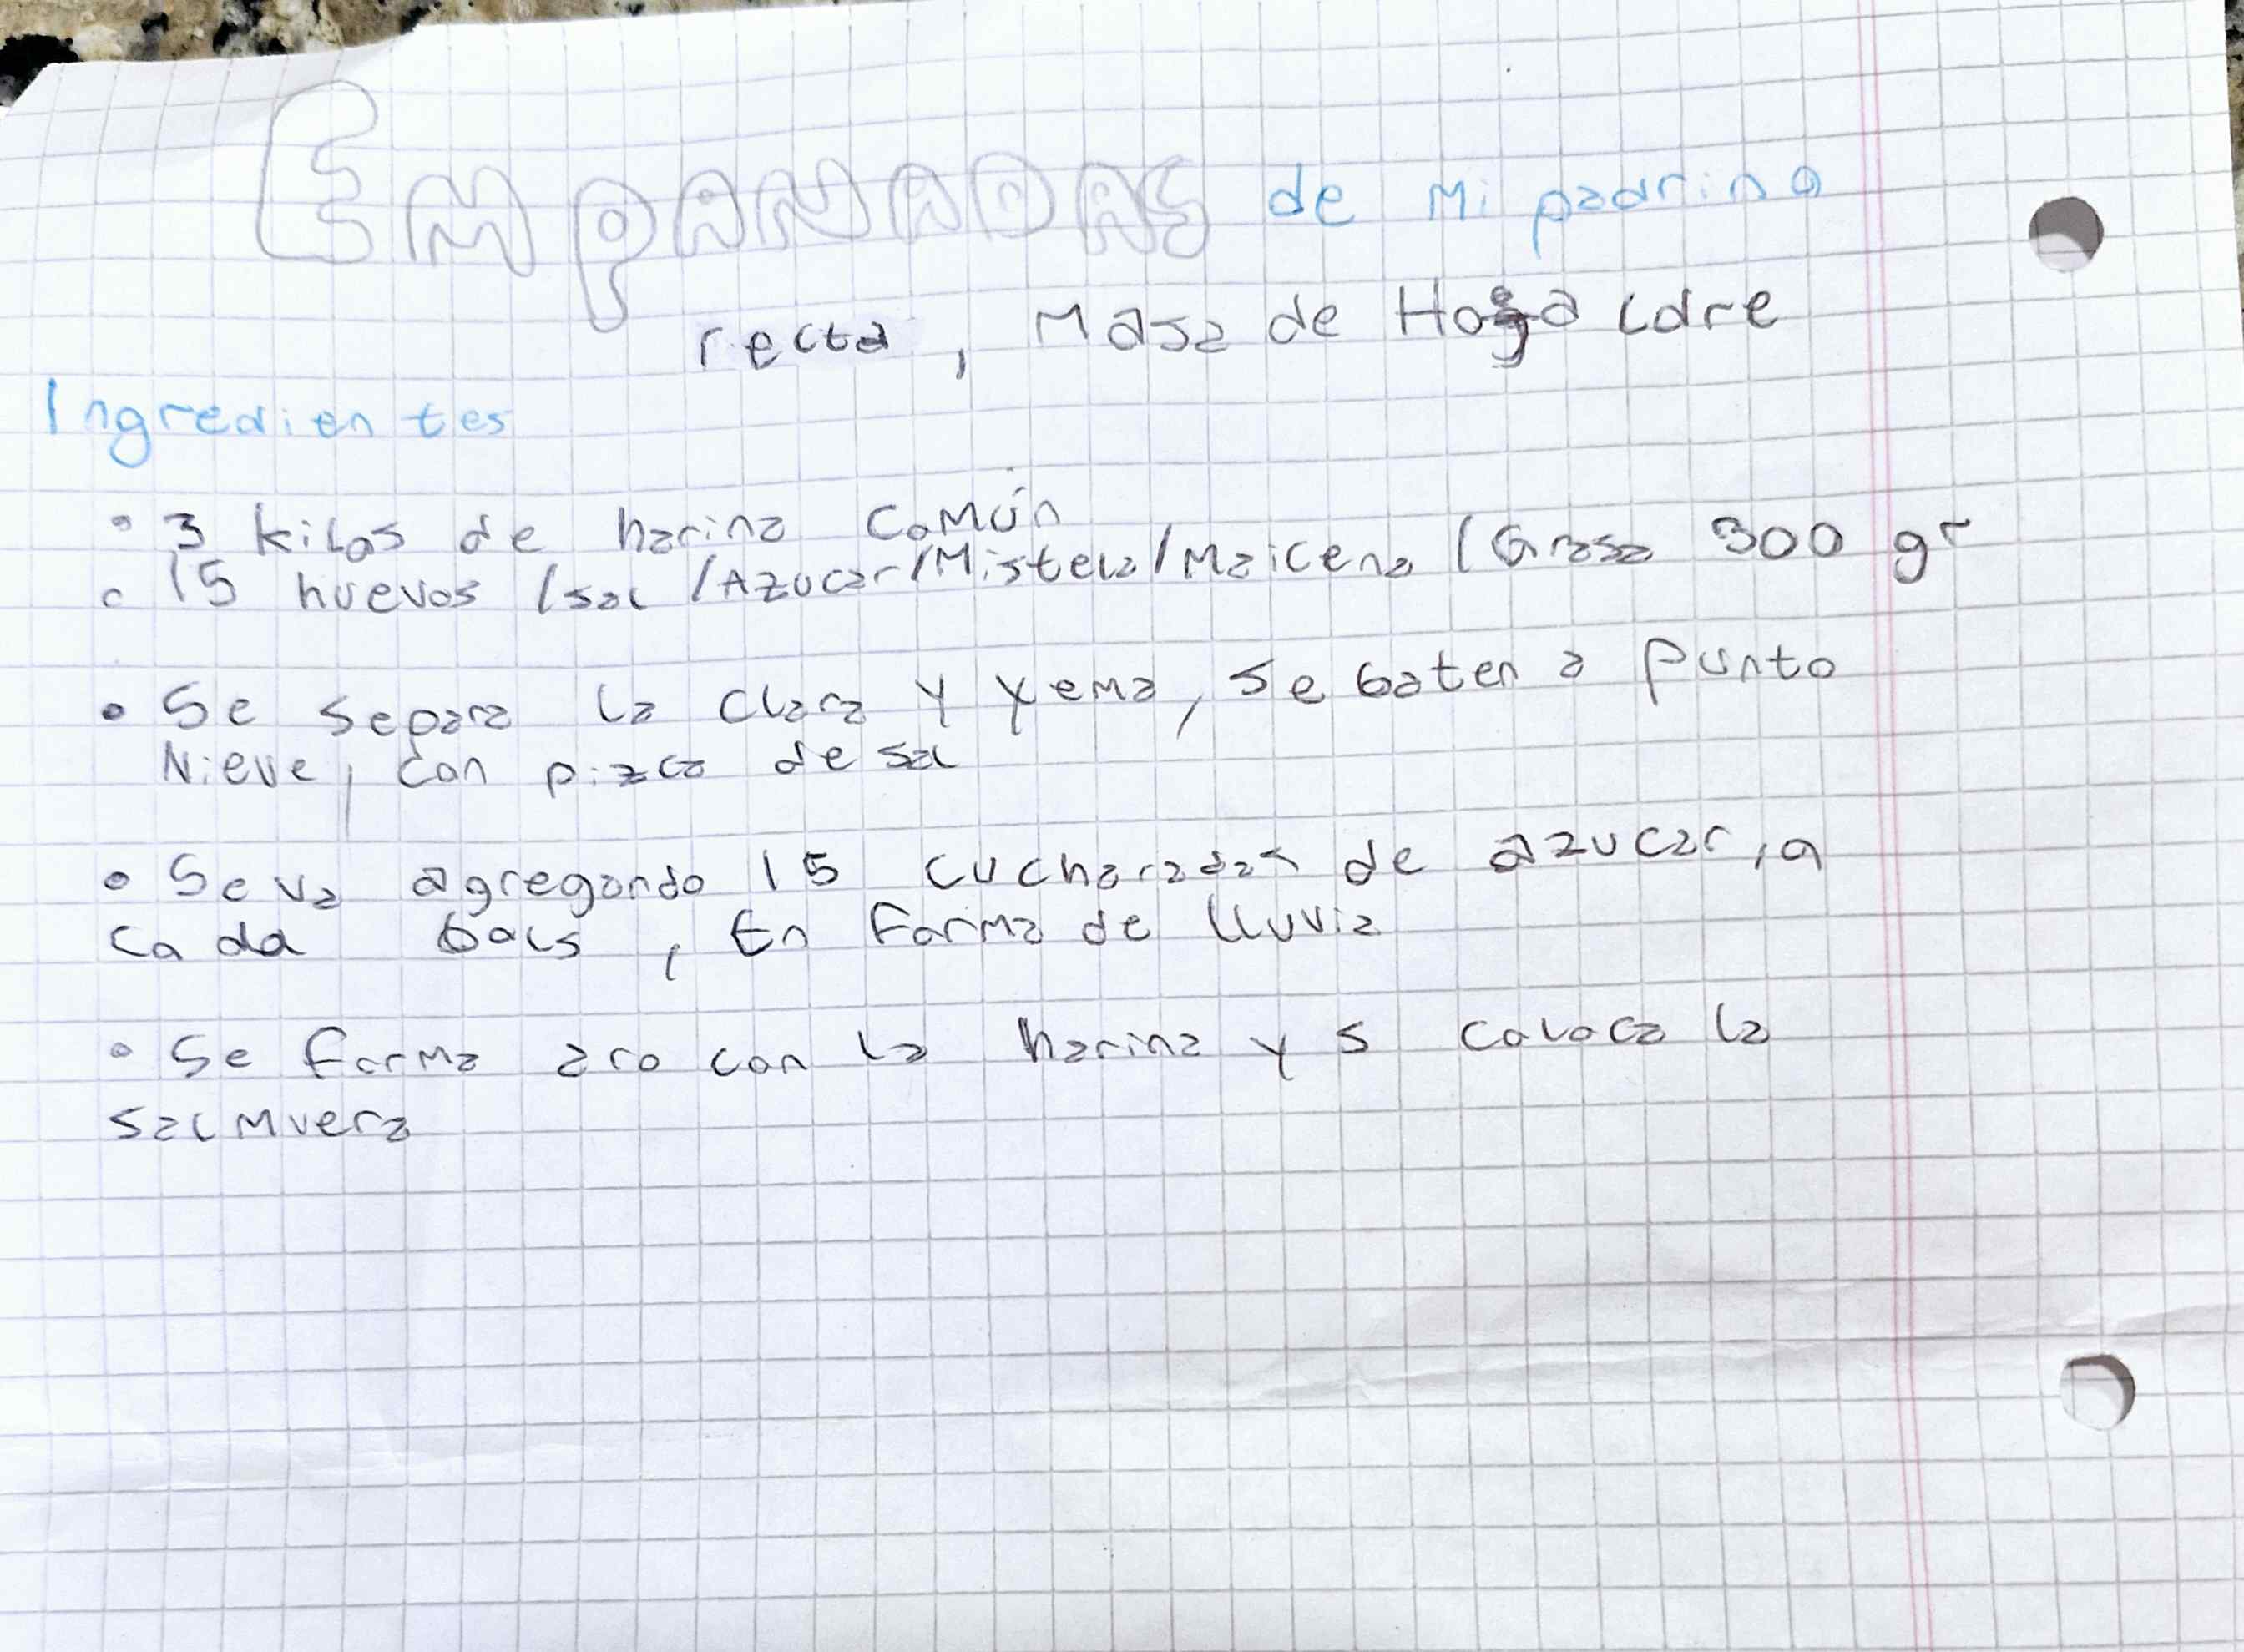 EMPANADAS de mi padrino
recta, Masa de Hoja ldre
Ingredientes
• 3 kilos de harina común
• 15 huevos /sal /Azucar/Mistela/Maicena /Grasa 300 gr
• Se separa la clara y yema, se baten a punto
Nieve, con pizca de sal
• Se va agregando 15 cucharadas de azucar, a
cada bols, En forma de lluvia
• Se forma aro con la harina y s coloca la
salmuera